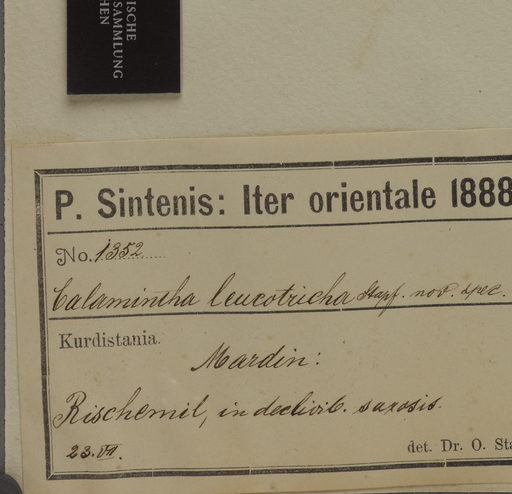 ISCHE
SAMMLUNG
HEN
P. Sintenis: Iter orientale 1888
No. 1352
Calamintha leucotricha Stapf. nov. spec.
Kurdistania.
Mardin:
Rischemil, in declivib. saxosis.
23. VI.
det. Dr. O. Sta